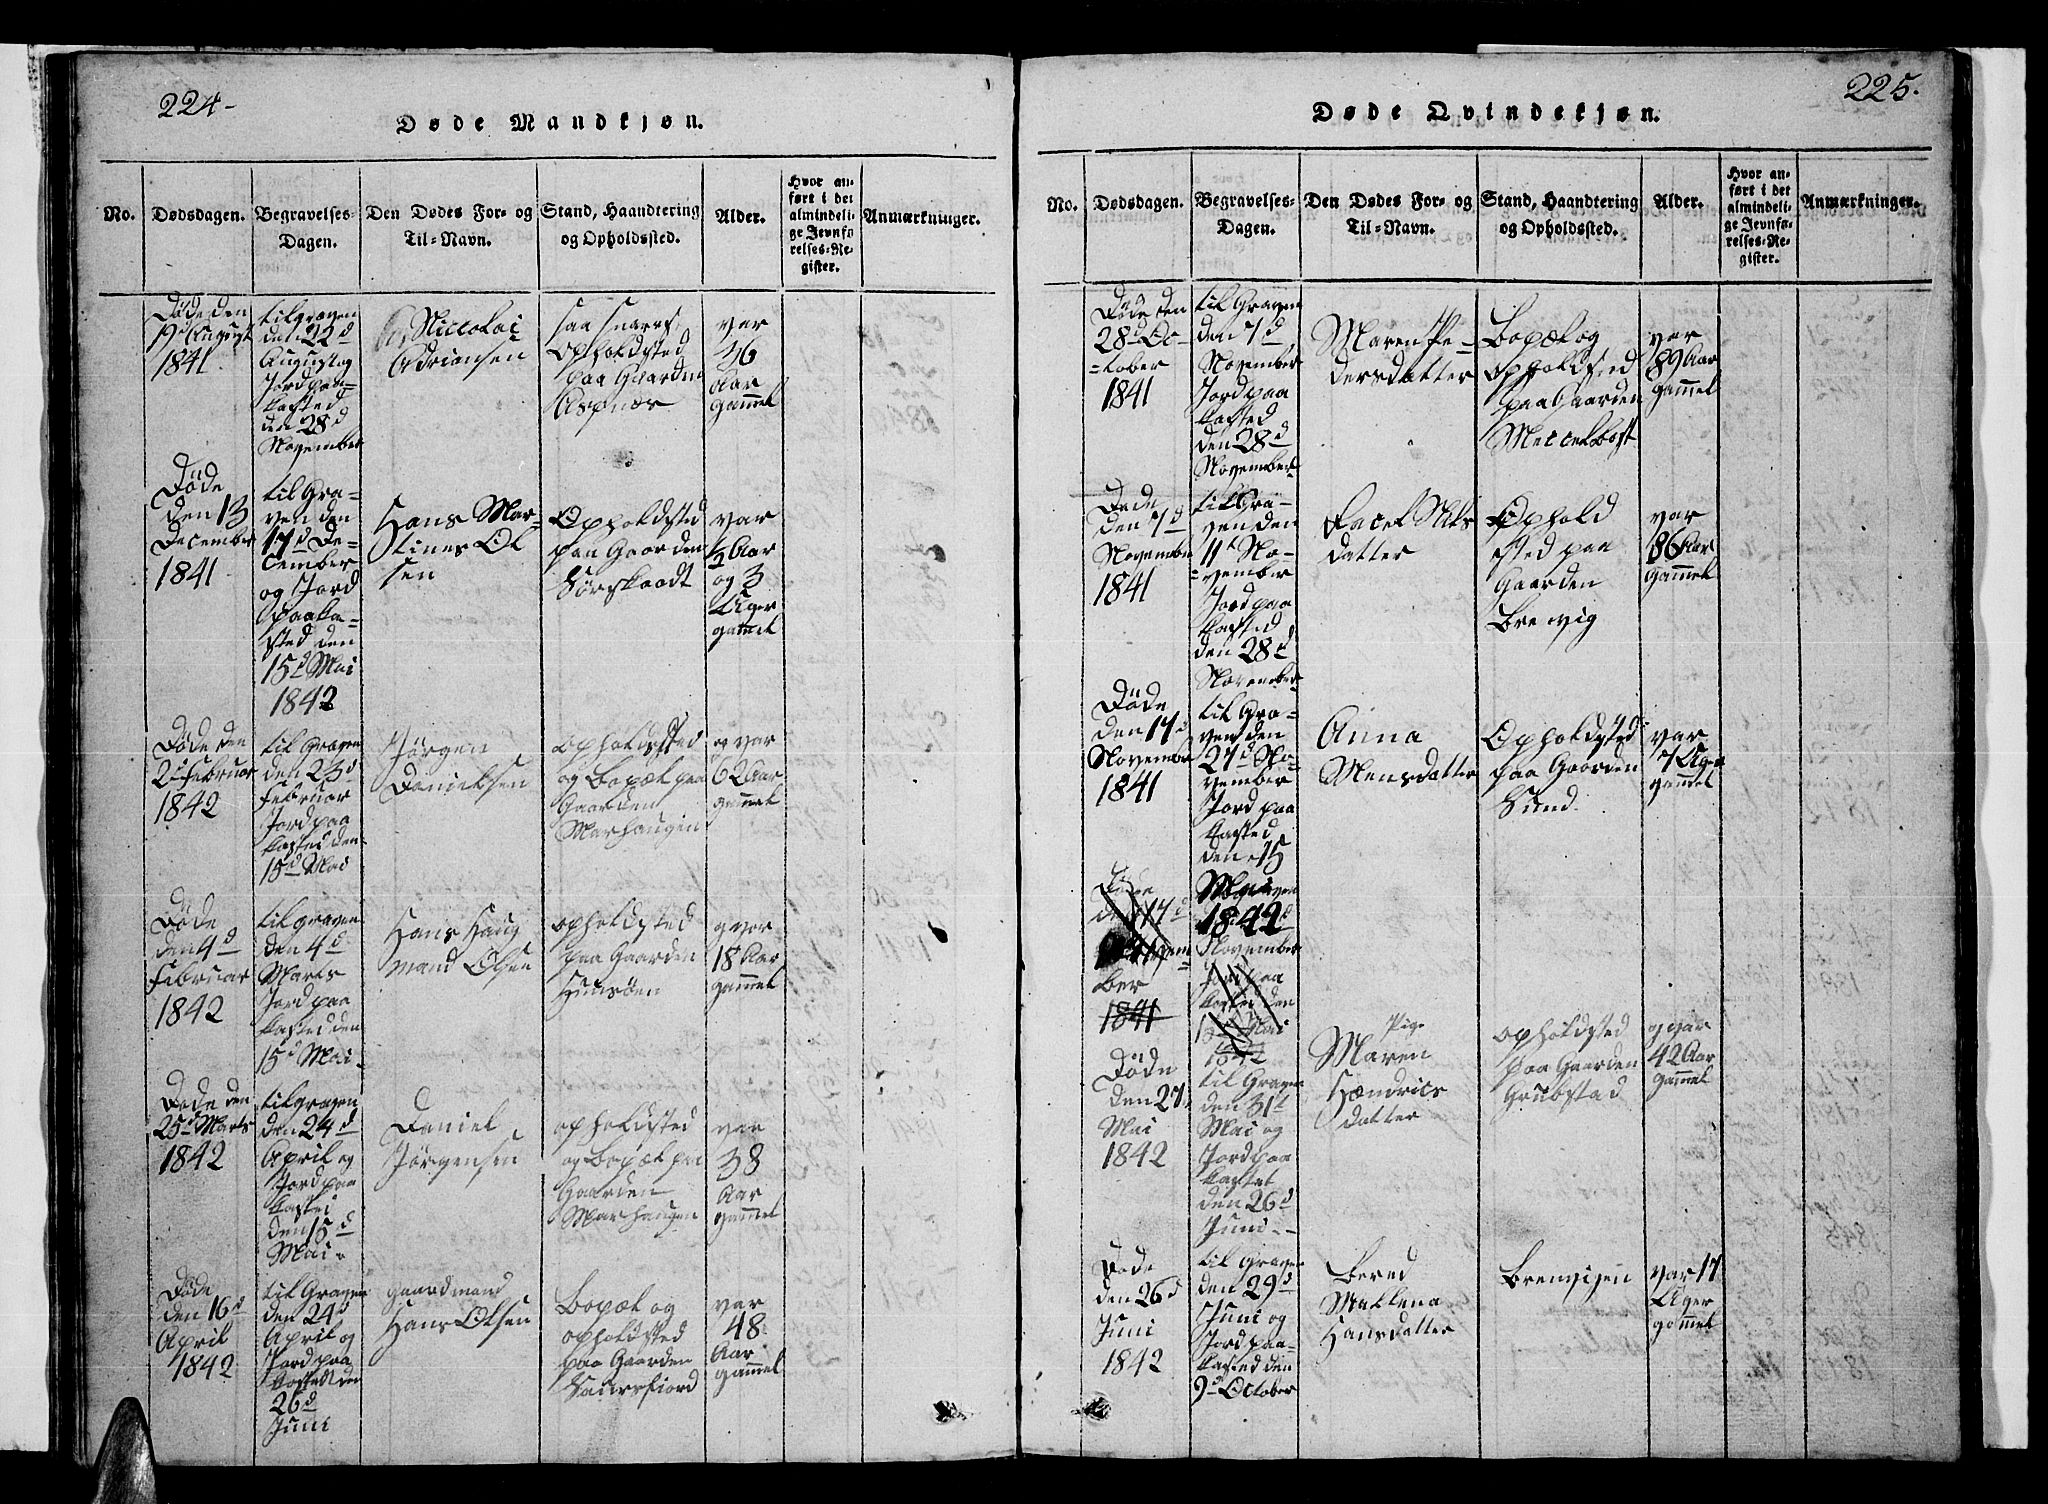 224-
Døde Mandkjøn.
No.
Dødsdagen.
Begravelses-
Dagen.
Den Dødes For- og
Til-Navn.
Stand, Haandtering
og Opholdssted.
Alder.
Hvor an-
ført i det
almindeli-
ge Jevnfø-
relses-Re-
gister.
Anmærkninger.
Døde den
19d August
1841
til graven
den 22d
August og
Jord paa-
kasted
den 28d
November
Niccolai
Adriansen
opholdsted
paa Gaarden
Aspnær
var
36
Aar
gammel
Døde
den 13
December
1841
til Gra-
ven den
17d De-
cember
og Jord
paaka-
sted den
15d Mai
1842
Hans Mar-
tines Ol
sen
Opholdsted
paa Gaarden
Sørskaadt
var
Aar
og 3
Uger
gamel
Døde den
2d Februar
1842
til Graven
den 23d
Februar
Jord paa
kasted den
15d Mai
Jørgen
Danielsen
opholdsted
og Bopæl paa
Gaarden
Marhaugen
og var
62 Aar
gammel
Døde
den 4d
Februar
1842
til graven
den 4d
Marts
Jord paa
kasted den
15d Mai-
Hans Haag
mand Olsen
opholdsted
paa Gaarden
Husøen
g var
18 Aar
gammel
Døde den
25d Marts
1842
til graven
den 24d
April og
Jord paa
kasted
den 15d
Mai
Daniel
Jørgensen
opholdsted
og Bopæl paa
Gaarden
Marhaugen
var
38
Aar
gammel
Døde
den 16d
April
1842
til Graven
den 24d
April og
Jord paa
kasted den
26d
Juni
gaardmand
Hans Olsen
Bopæl og
opholdsted
paa Gaarden
Saursfiord
var
48
Aar
gammel
225.
Døde Qvindekjøn.
No.
Dødsdagen.
Begravelses-
Dagen.
Den Dødes For- og
Til-Navn.
Stand, Haandtering
og Opholdssted.
Alder.
Hvor an-
ført i det
almindeli-
ge Jevnfø-
relses-Re-
gister.
Anmærkninger.
Døde den
28d Oc-
tober
1841
til Graven
den 7d
November
Jord paa
kasted
den 28d
November
Maren Pe-
dersdatter
Bopæl og
opholdsted
paa Gaarden
Meccelbost
var
89 Aar
gammel
Døde
den 7d
November
1841
til Gra-
ven den
11t No-
vember
Jord paa
kasted
den 28d
November
Nils
datter
Ophold
sted paa
Gaarden
Brevig
var
86 Aar
gammel
Døde
den 17d
November
1841
til Gra-
ven den
27d No-
vember
Jord paa
kasted
den 15
Mai
1842
Anna
Mensdatter
Opholdsted
paa Gaarden
Sund
var
7 Uger
gammel
den 17d
ber
1841
November
Jord paa
kasted den
Mai
1842
Døde
den 27
Mai
1842
til Graven
den 31t
Mai og
Jord paa
kastet
den 26d
Juni--
Pige
Maren
Hændrics
datter
opholdsted
paa Gaarden
Grubstad
og var
42 Aar
gammel
Døde
den 26d
Juni
1842
til graven
den 29d
Juni og
Jord paa-
kasted den
9d October
Bered
Mallena
Hansdatter
Brenvigen
var 17
Uger
gammel